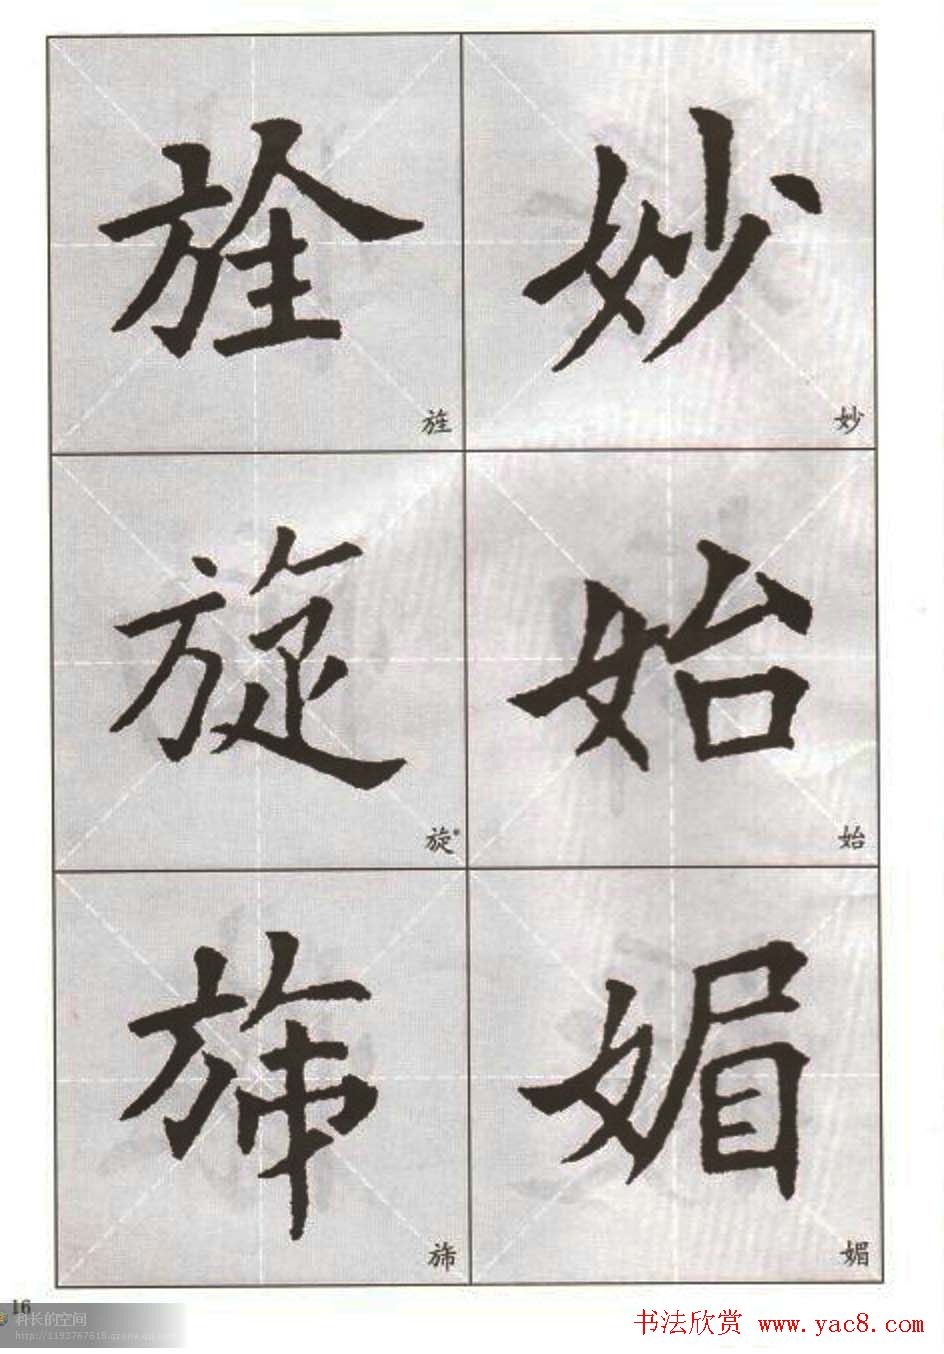 旌 妙
旌 妙
旋 始
旋* 始
旆 媚
旆 媚
16
科长的空间
http://1193767618.qzone.qq.com
书法欣赏 www.yac8.com